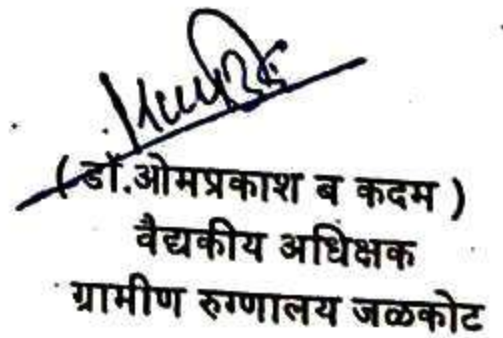 ( डॉ.ओमप्रकाश ब कदम )
वैद्यकीय अधिक्षक
ग्रामीण रुग्णालय जळकोट